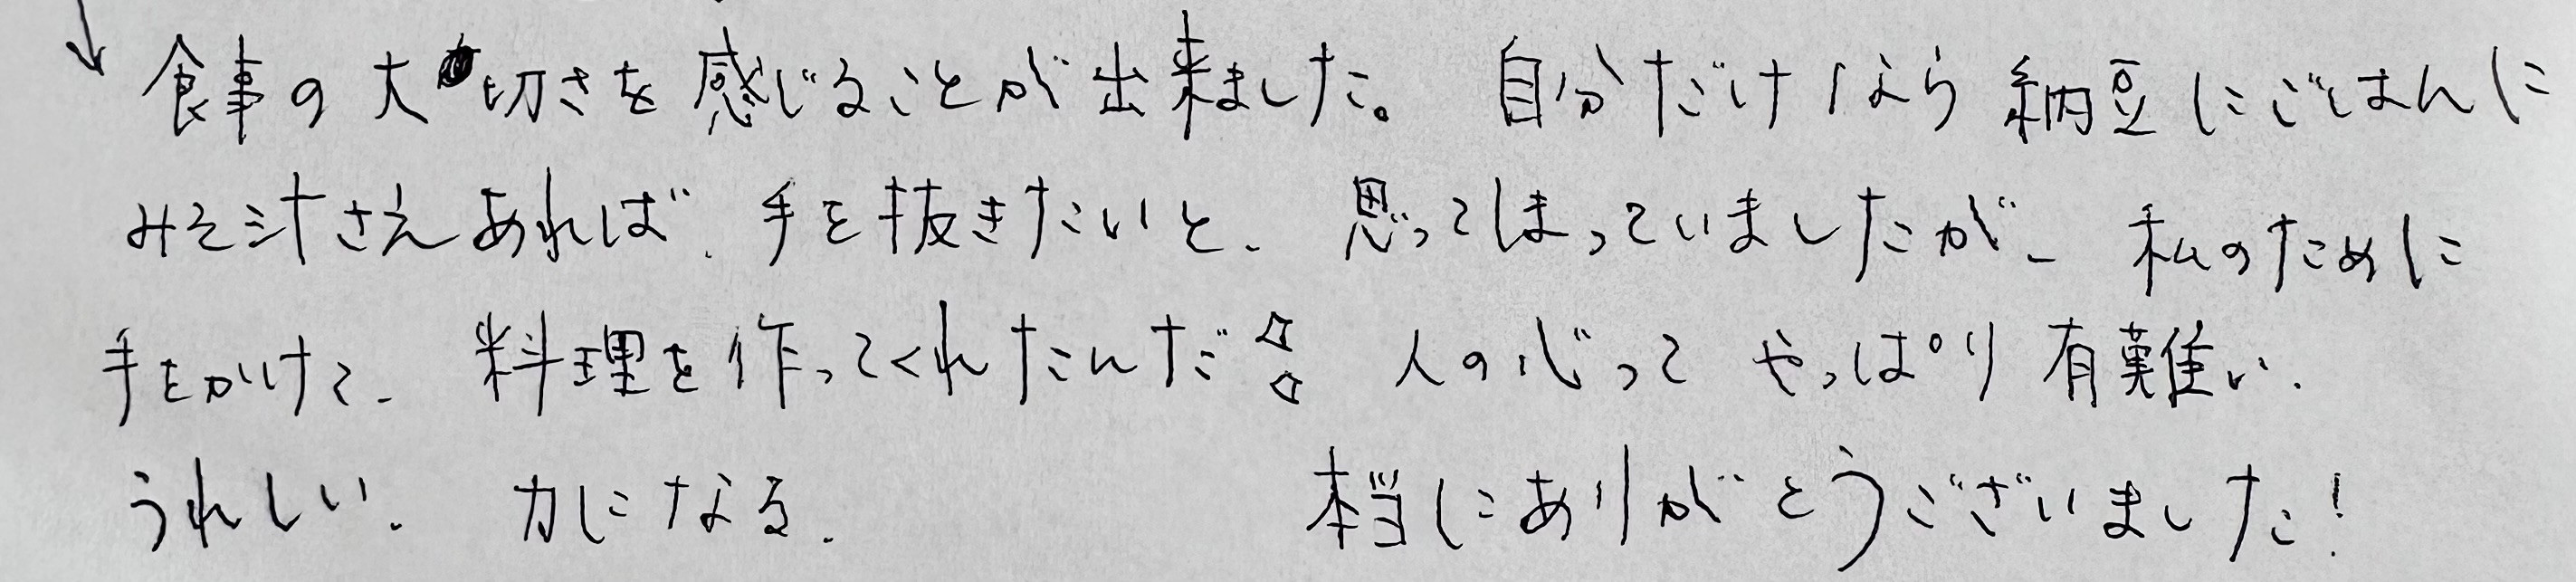 食事の大切さを感じることが出来ました。 自分だけなら納豆にごはんに
みそ汁さえあれば、手を抜きたいと、思ってしまっていましたが、私のために
手をかけて、料理を作ってくれたんだ!! 人の心って やっぱり有難い、
うれしい、 力になる、 本当にありがとうございました!